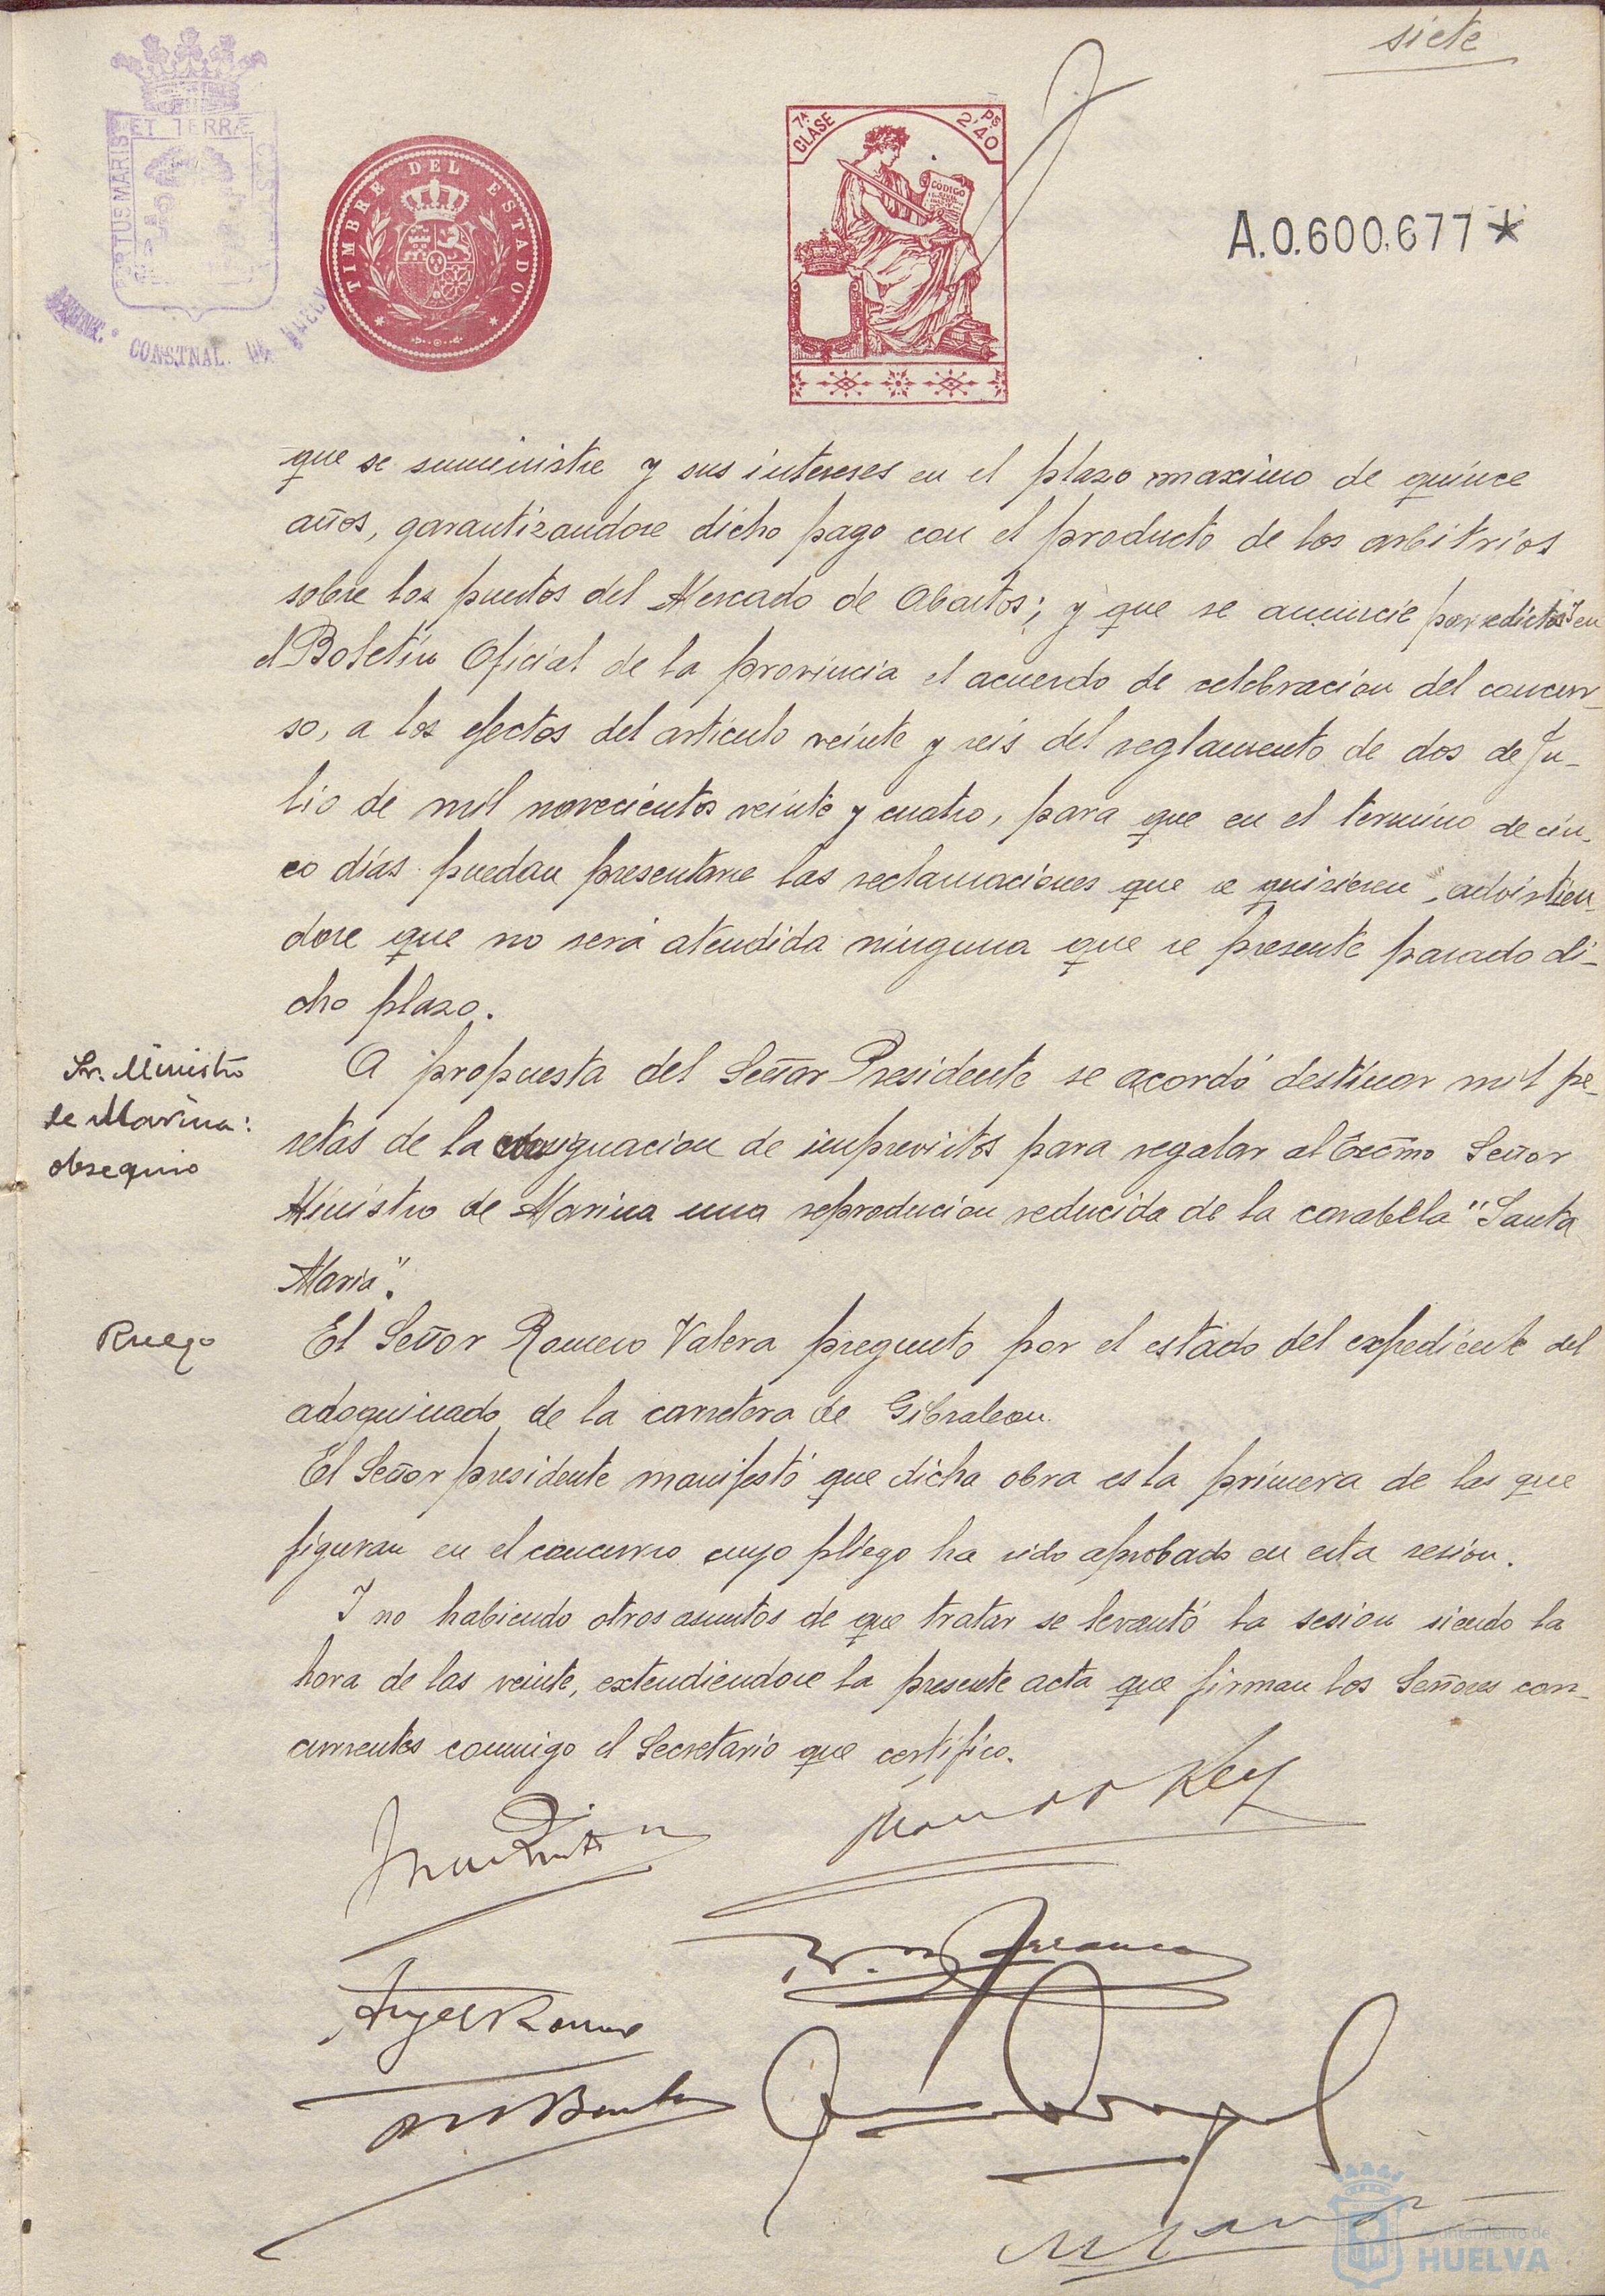 siete
PORTUS MARIS
ET TERRÆ
CUSTODIA
CONSTNAL.
TIMBRE DEL ESTADO
7ª CLASE
Ps 2'40
CÓDIGO
A.0.600.677*
que se suministre y sus intereses en el plazo maximo de quince
años, garantizandose dicho pago con el producto de los arbitrios
sobre los puestos del Mercado de Abastos; y que se anuncie por edictos y en
el Boletin Oficial de la provincia el acuerdo de celebracion del concur-
so, a los efectos del articulo veinte y seis del reglamento de dos de Ju-
lio de mil novecientos veinte y cuatro, para que en el termino de cin-
co días puedan presentarse las reclamaciones que se quisieren, advirtien-
dose que no será atendida ninguna que se presente pasado di-
cho plazo.
Sr. Ministro
de Marina:
obsequio
A propuesta del Señor Presidente se acordó destinar mil pe-
setas de la consignacion de imprevistos para regalar al Excmo Señor
Ministro de Marina una reproducion reducida de la carabela "Santa
Maria".
Ruego
El Señor Romero Valera pregunto por el estado del expediente del
adoquinado de la carretera de Gibraleon.
El Señor presidente manifestó que dicha obra es la primera de las que
figuran en el concurso cuyo pliego ha sido aprobado en esta sesion.
Y no habiendo otros asuntos de que tratar se levantó la sesion siendo la
hora de las veinte, extendiendose la presente acta que firman los Señores con-
currentes conmigo el Secretario que certifico.
Angel Romero
Ayuntamiento de
HUELVA